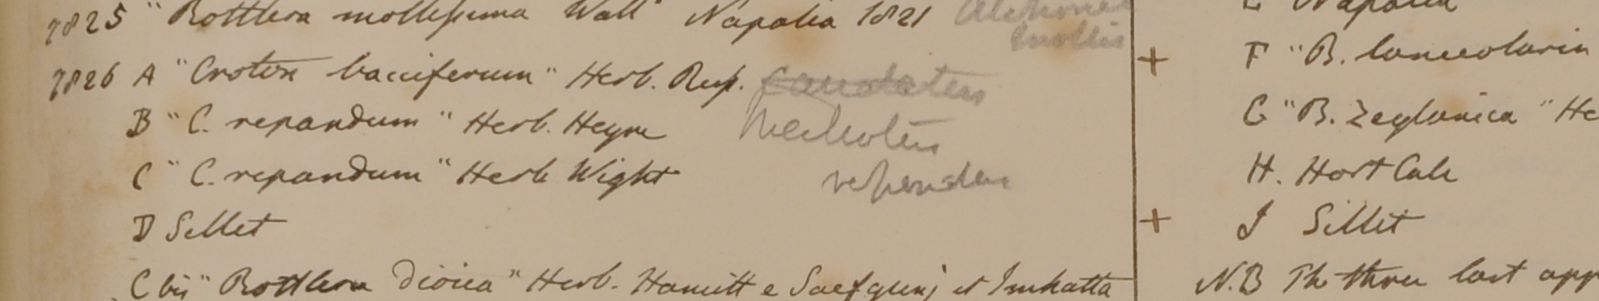 7825 "Rottlera mollissima Wall" Napalia 1821
7826 A "Croton bacciferum" Herb. Rup.
B "C. repandum" Herb. Heyne
C "C. repandum" Herb Wight
repandus
D Sillet
C bis "Rottlera Dioica" Herb. Hamilt e
Napalia
+ F "B. lanceolaria
G "B. Zeylanica" He
H. Hort Calc
+ I Sillet
N.B The three last app